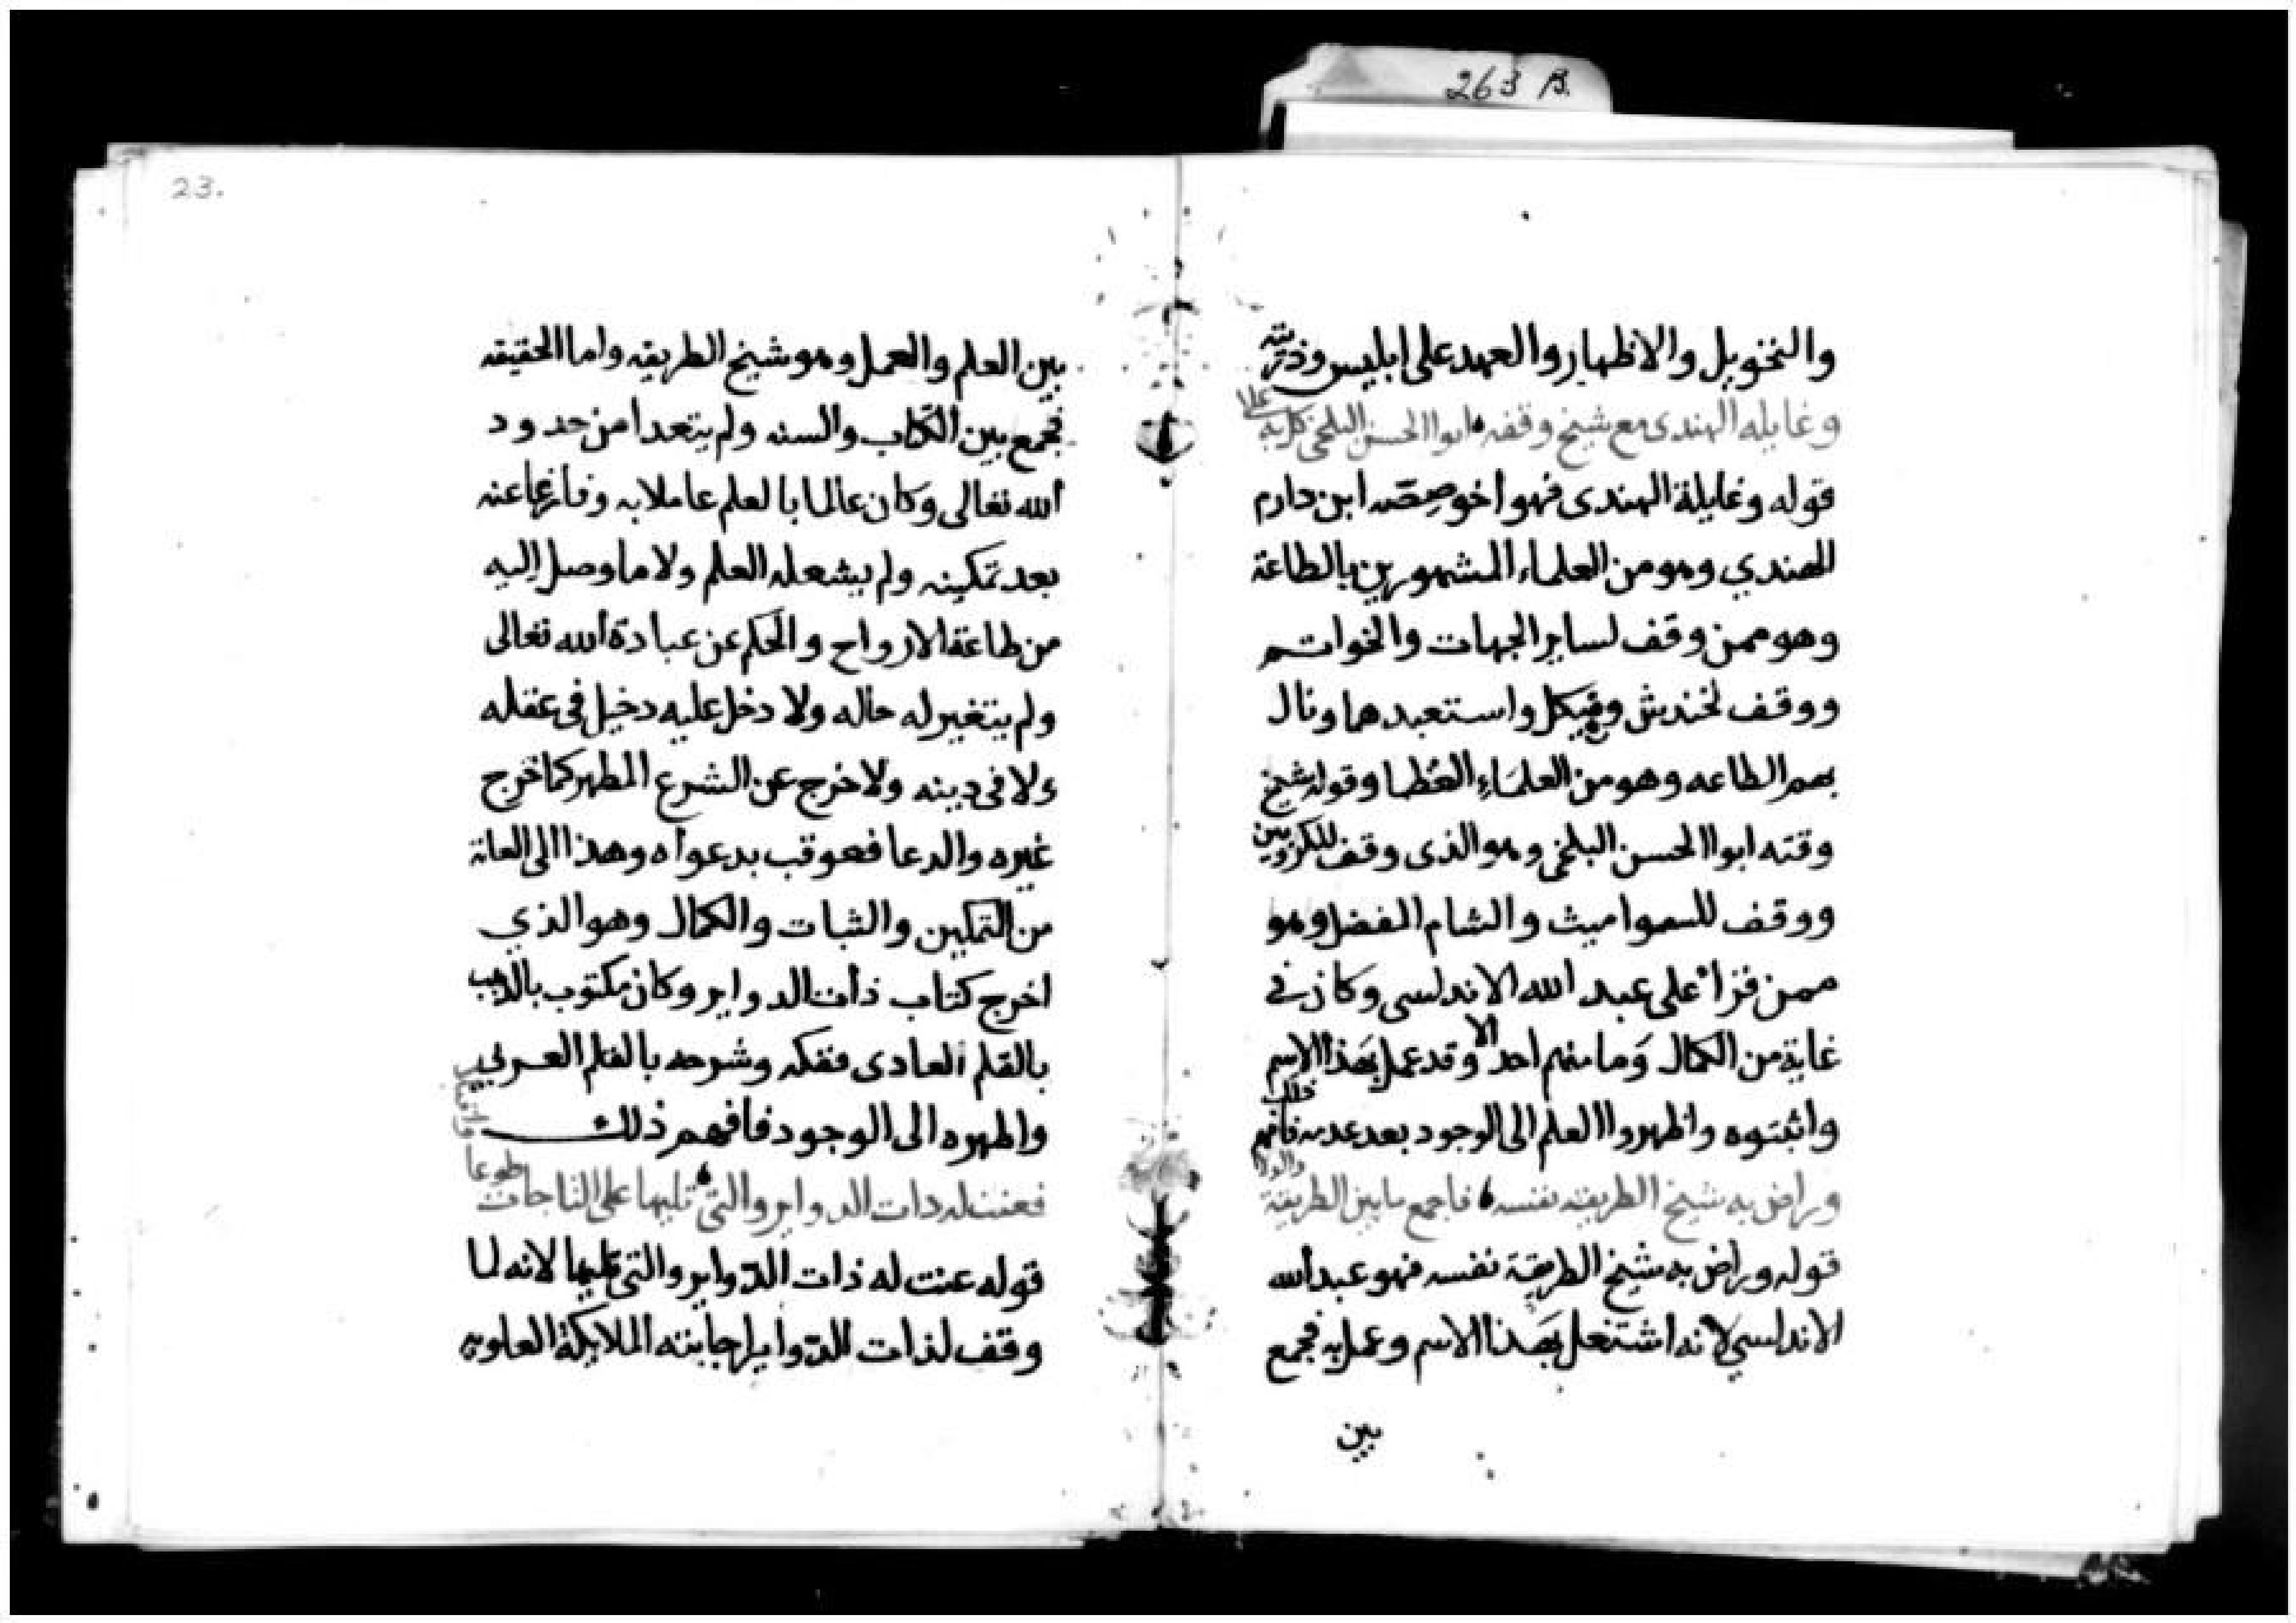 263 B.
والتخويل والاظهار والعهد على ابليس وذريته
وغايله الهندى مع شيخ وقفه ابوا الحسن البلخى كل به علا
قوله وغايلة الهندى فهو اخو صصه ابن دارم
الهندي وهو من العلماء المشهورين بالطاعة
وهو ممن وقف لساير الجهات والخواتم
ووقف لخندش وهيكل واستعبدهما ونال
بهم الطاعه وهو من العلمَاءِ العُظما وقوله شيخ
وقته ابوا الحسن البلخى وهو الذى وقف للكروبين
ووقف للسمواميث والشام المفضل وهو
ممن قرا على عبد الله الاندلسى وكان في
غاية من الكمال وَما منهم احد الا وقد عمل بهَذا الاسم
واثبتوه واظهروا العلم الى الوجود بعد عدمه فافهم ذلك
وراض به شيخ الطريقه نفسه فاجمع ما بين الطريقة والولا
قوله وراض به شيخ الطريقة نفسه فهو عبد الله
الاندلسي لانه اشتغل بهَذا الاسم وعمل به فجمع
بين
23.
بين العلم والعمل وهو شيخ الطريقه واما الحقيقه
فجمع بين الكتاب والسنه ولم يتعدا من حدود
الله تعالى وكان عالما بالعلم عاملا به وفارغا عنه
بعد تمكينه ولم يشعله العلم ولا ما وصل اليه
من طاعة الارواح والحكم عن عبادة الله تعالى
ولم يتغير له حاله ولا دخل عليه دخيل فى عقله
ولا فى دينه ولا خرج عن الشرع المطهر كما خرج
غيره والدعا فعوقب بدعواه وهذا الى الغاية
من التمكين والثبات والكمال وهو الذي
اخرج كتاب ذات الدواير وكان مكتوب بالذهب
بالقلم العادى ففكه وشرحه بالقلم العربي
واظهره الى الوجود فافهم ذلك
فعنت له دات الدواير والتى تليها على الناجات طوعا
قوله عنت له ذات الدّواير والتى تليها لانه لما
وقف لذات الدّواير اجابته الملايكة العلويه